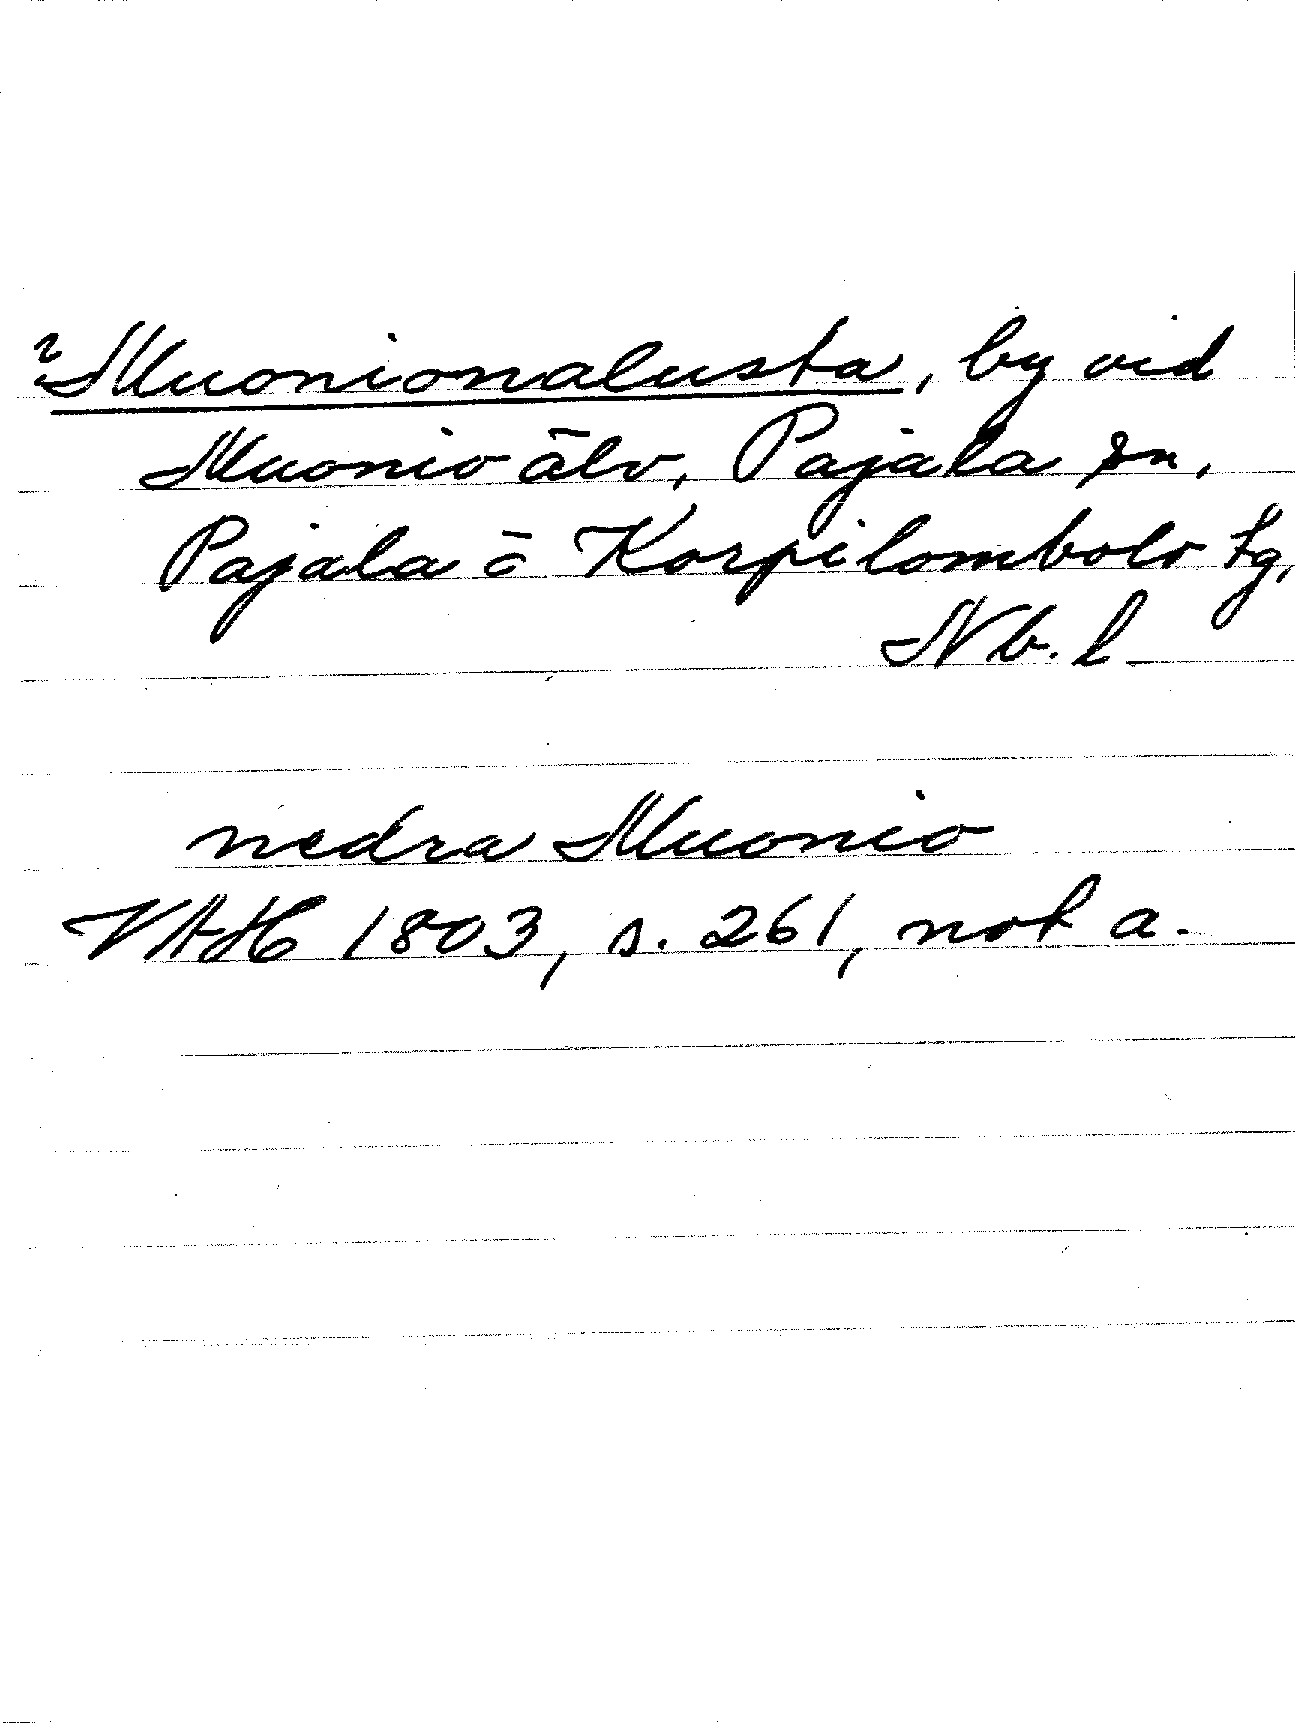 ? Muonionalusta, by vid
Muonio älv, Pajala sn,
Pajala o Korpilombolo tg,
Nb. l
nedra Muonio
VAH 1803, s. 261, not a.